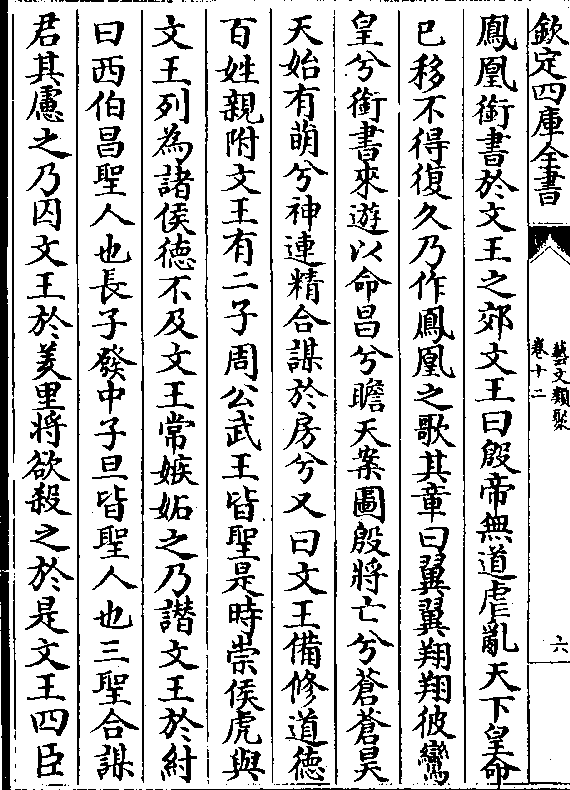 欽定四庫全書
藝文類聚
卷十二
六
鳳凰銜書於文王之郊文王曰殷帝無道虐亂天下皇命
已移不得復久乃作鳳凰之歌其章曰翼翼翔翔彼鸞
皇兮銜書來遊以命昌兮瞻天案圖殷將亡兮蒼蒼昊
天始有萌兮神連精合謀於房兮又曰文王備修道德
百姓親附文王有二子周公武王皆聖是時崇侯虎與
文王列為諸侯德不及文王常嫉妬之乃譖文王於紂
曰西伯昌聖人也長子發中子旦皆聖人也三聖合謀
君其慮之乃囚文王於羑里將欲殺之於是文王四臣